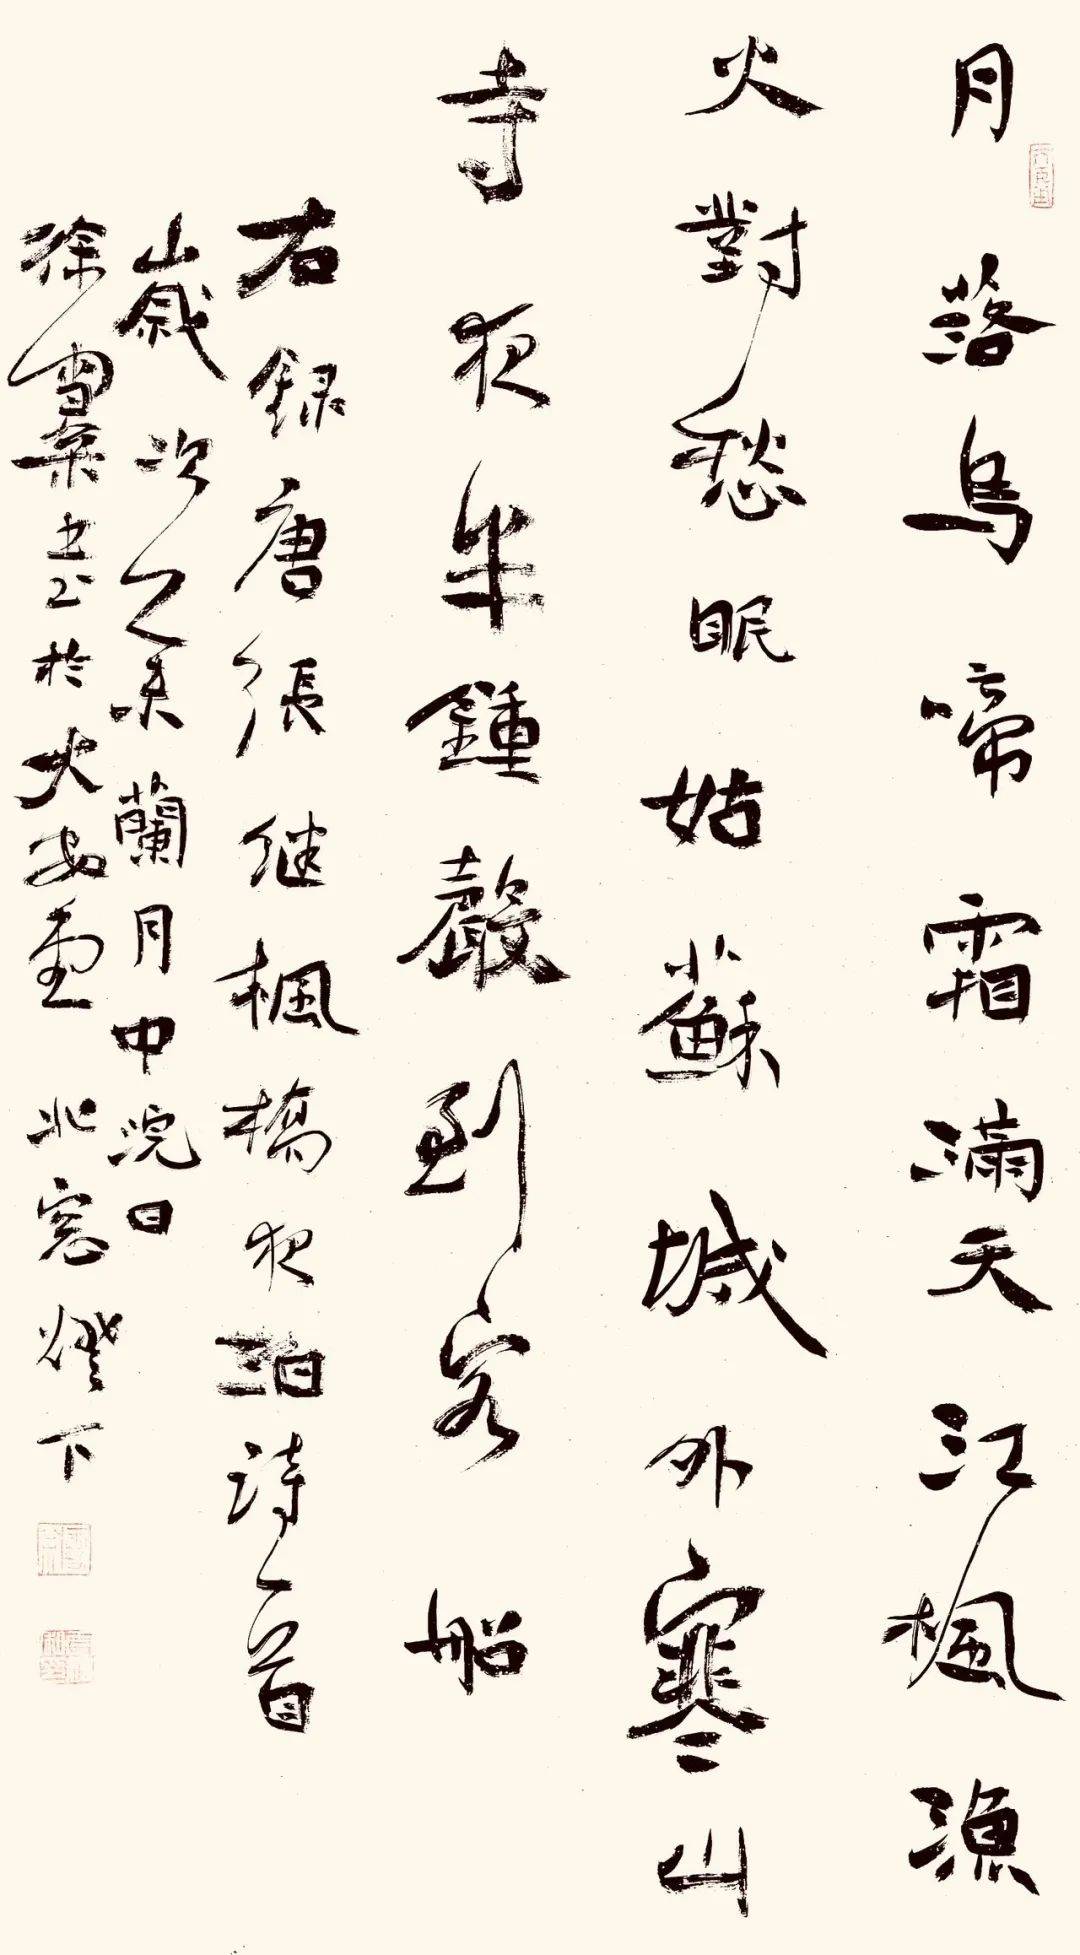 月落烏啼霜滿天江楓漁
火對愁眠姑蘇城外寒山
寺夜半鍾聲到客船
右録唐張继楓橋夜泊詩一首
歲次乙未蘭月中浣日
徐書於大安堂北窓燈下